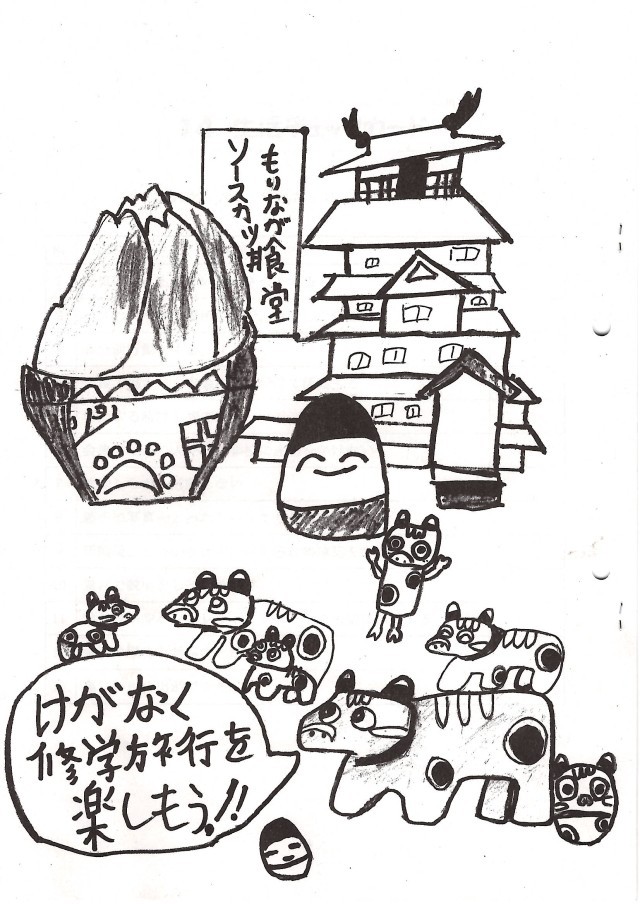 もりなが食堂
ソースカツ丼
けがなく
修学旅行を
楽しもう!!